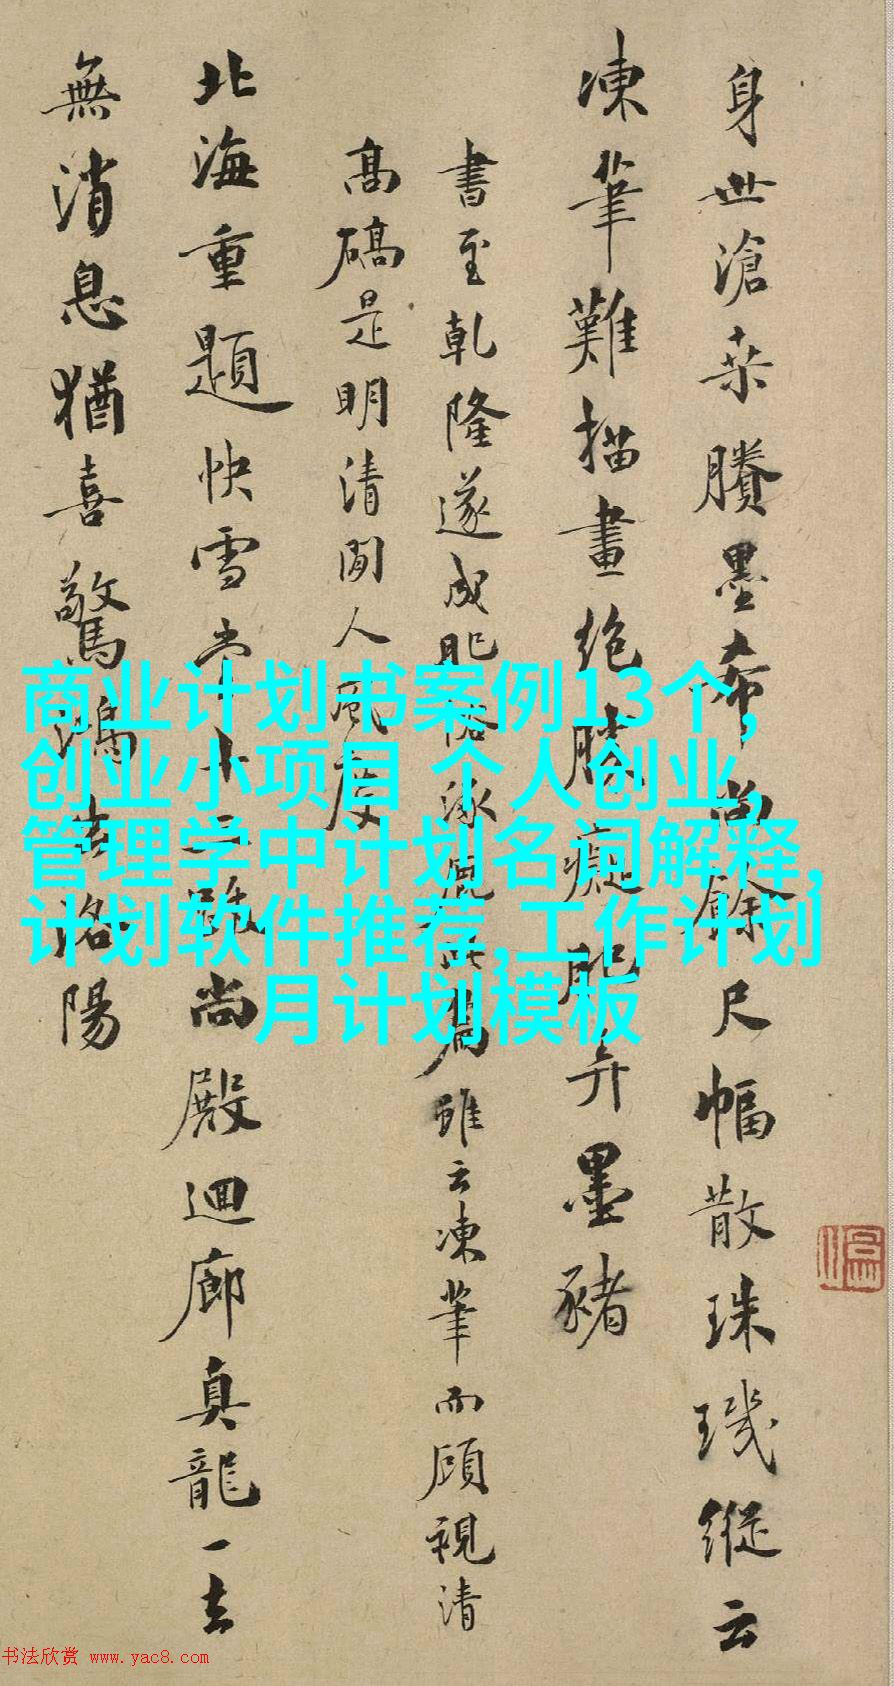 身世滄桑賸墨希尚餘尺幅散珠璣縱云
凍筆難描畫絶勝癡肥弄墨豬
書至乾隆遂成肥俗涿鹿此篇雖云凍筆而顧視清
高碻是明清間人風度
北海重題快雪堂尚殿迴廊真龍一去
無消息猶喜驚鴻洛陽
商业计划书案例13个,
创业小项目 个人创业,
管理学中计划名词解释,
计划软件推荐,工作计划
月计划模板
书法欣赏 www.yac8.com